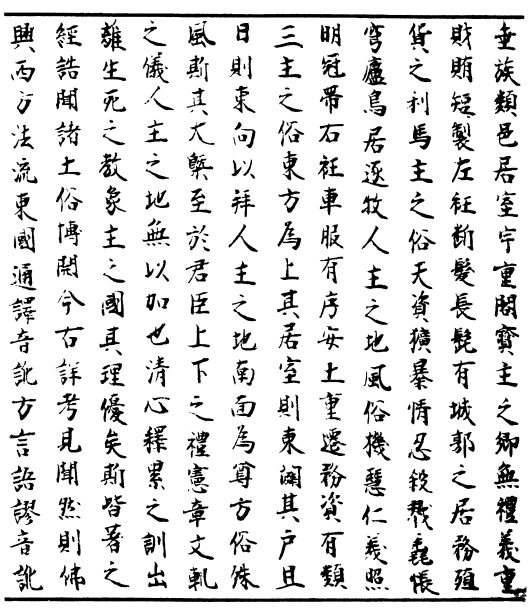 垂族類邑居室宇重閣寶主之鄉無禮義重
財賄短製左衽斷髮長髭有城郭之居務殖
貨之利馬主之俗天資獷暴情忍殺戮毳帳
穹廬鳥居逐牧人主之地風俗機慧仁義照
明冠帶右衽車服有序安土重遷務資有類
三主之俗東方為上其居室則東闢其戶旦
日則東向以拜人主之地南面為尊方俗殊
風斯其大槩至於君臣上下之禮憲章文軌
之儀人主之地無以加也清心釋累之訓出
離生死之教象主之國其理優矣斯皆著之
經誥聞諸土俗博關今古詳考見聞然則佛
興西方法流東國通譯音訛方言語謬音訛